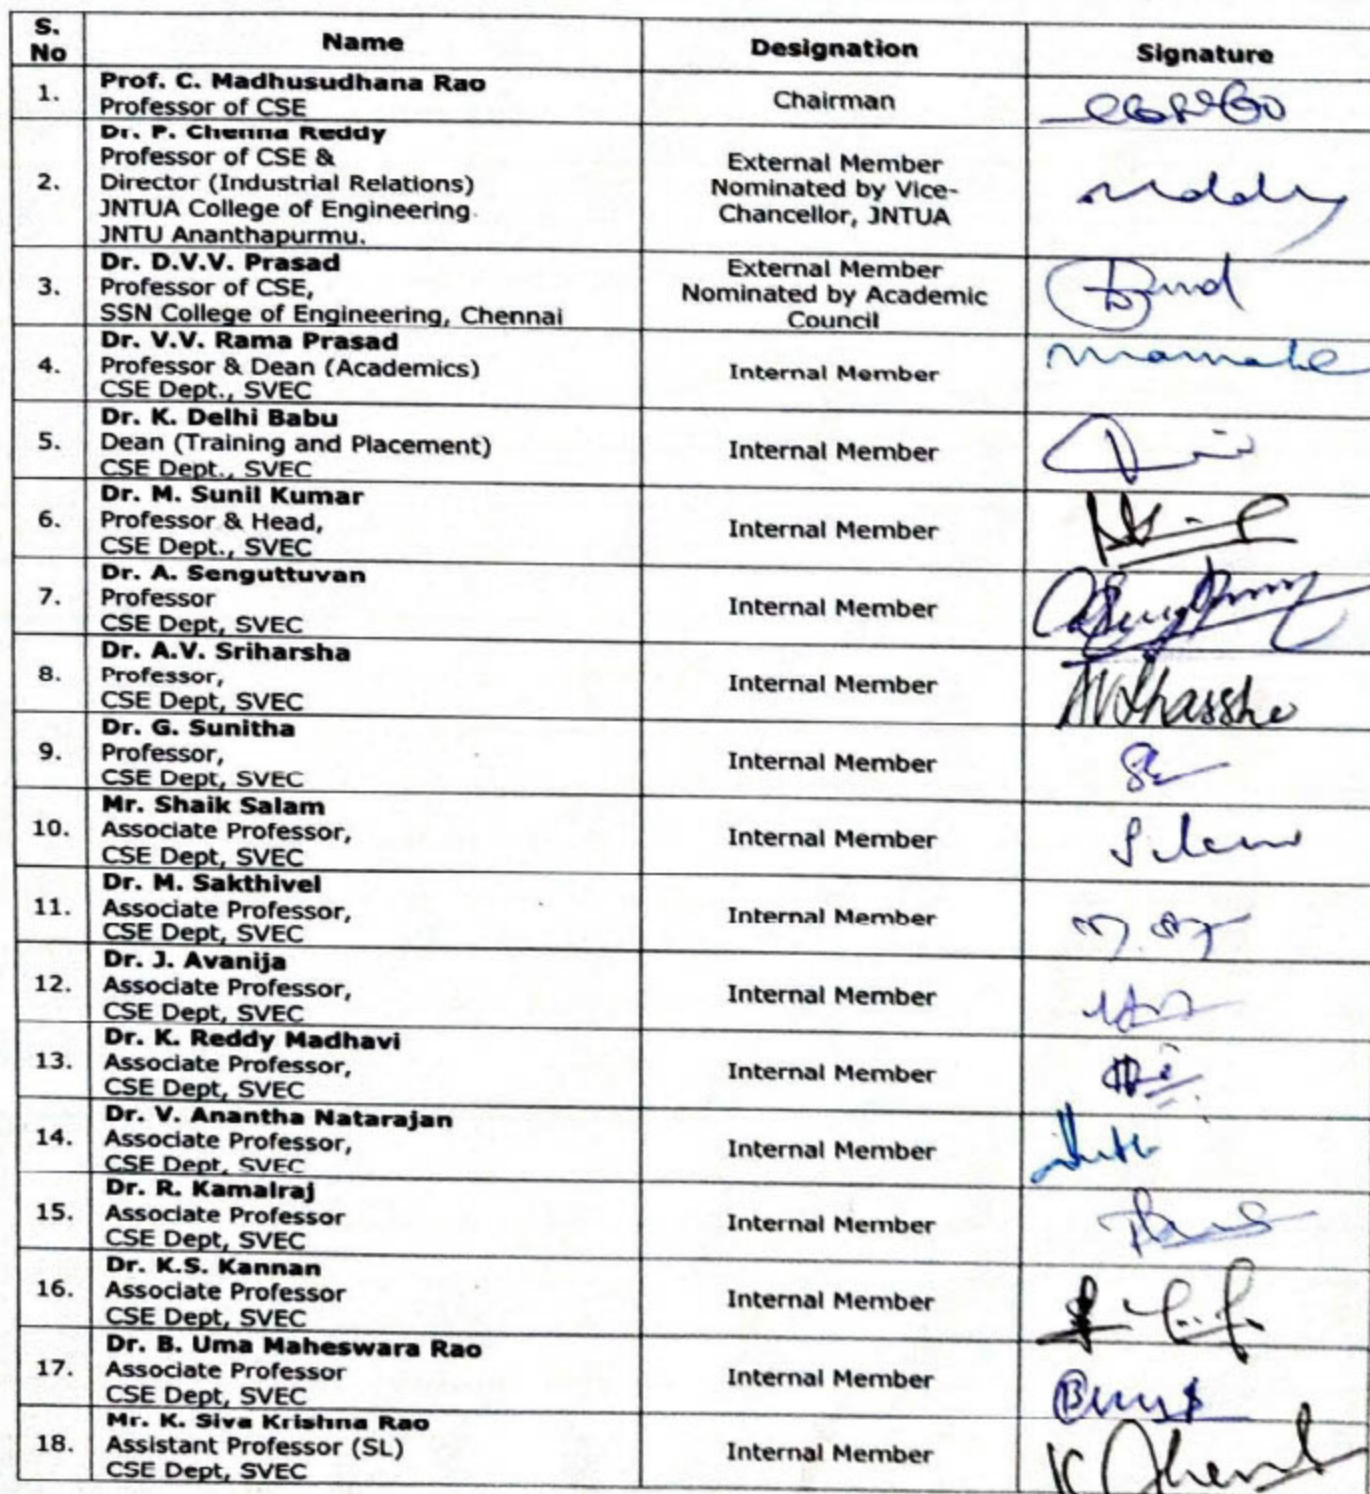 S. No Name Designation Signature
1. Prof. C. Madhusudhana Rao
Professor of CSE
Chairman
2. Dr. P. Chenna Reddy
Professor of CSE &
Director (Industrial Relations)
JNTUA College of Engineering
JNTU Ananthapurmu.
External Member
Nominated by Vice-
Chancellor, JNTUA
3. Dr. D.V.V. Prasad
Professor of CSE,
SSN College of Engineering, Chennai
External Member
Nominated by Academic
Council
4. Dr. V.V. Rama Prasad
Professor & Dean (Academics)
CSE Dept., SVEC
Internal Member
5. Dr. K. Delhi Babu
Dean (Training and Placement)
CSE Dept., SVEC
Internal Member
6. Dr. M. Sunil Kumar
Professor & Head,
CSE Dept., SVEC
Internal Member
7. Dr. A. Senguttuvan
Professor
CSE Dept, SVEC
Internal Member
8. Dr. A.V. Sriharsha
Professor,
CSE Dept, SVEC
Internal Member
9. Dr. G. Sunitha
Professor,
CSE Dept, SVEC
Internal Member
10. Mr. Shaik Salam
Associate Professor,
CSE Dept, SVEC
Internal Member
11. Dr. M. Sakthivel
Associate Professor,
CSE Dept, SVEC
Internal Member
12. Dr. J. Avanija
Associate Professor,
CSE Dept, SVEC
Internal Member
13. Dr. K. Reddy Madhavi
Associate Professor,
CSE Dept, SVEC
Internal Member
14. Dr. V. Anantha Natarajan
Associate Professor,
CSE Dept, SVEC
Internal Member
15. Dr. R. Kamalraj
Associate Professor
CSE Dept, SVEC
Internal Member
16. Dr. K.S. Kannan
Associate Professor
CSE Dept, SVEC
Internal Member
17. Dr. B. Uma Maheswara Rao
Associate Professor
CSE Dept, SVEC
Internal Member
18. Mr. K. Siva Krishna Rao
Assistant Professor (SL)
CSE Dept, SVEC
Internal Member